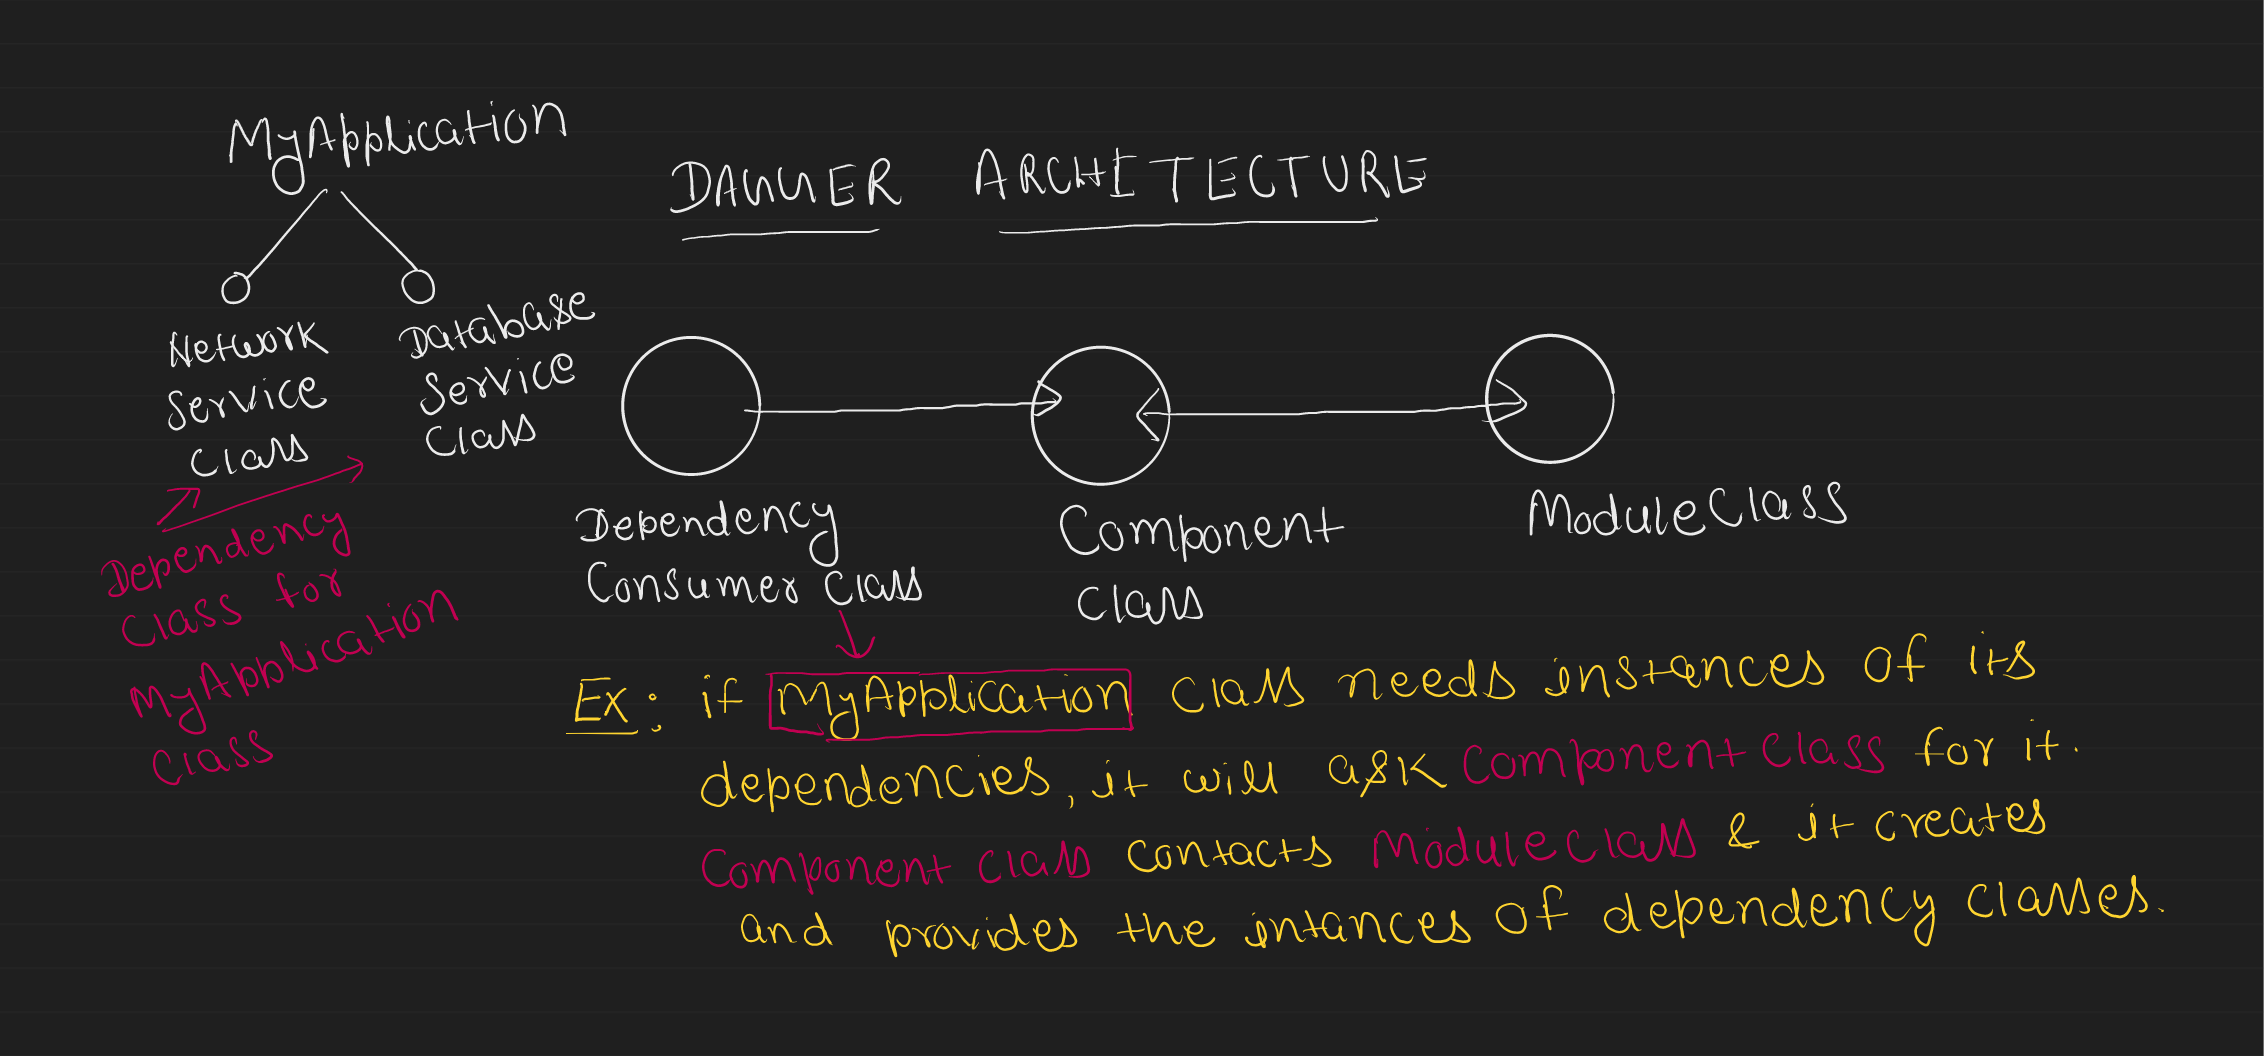 MyApplication
DAGGER ARCHITECTURE
Network
Service
Class
Database
Service
Class
Dependency
Class for
MyApplication
Class
Dependency
Consumer Class
Component
Class
ModuleClass
Ex: if MyApplication Class needs instances of its
dependencies, it will ask Component Class for it.
Component Class contacts ModuleClass & it creates
and provides the intances of dependency classes.